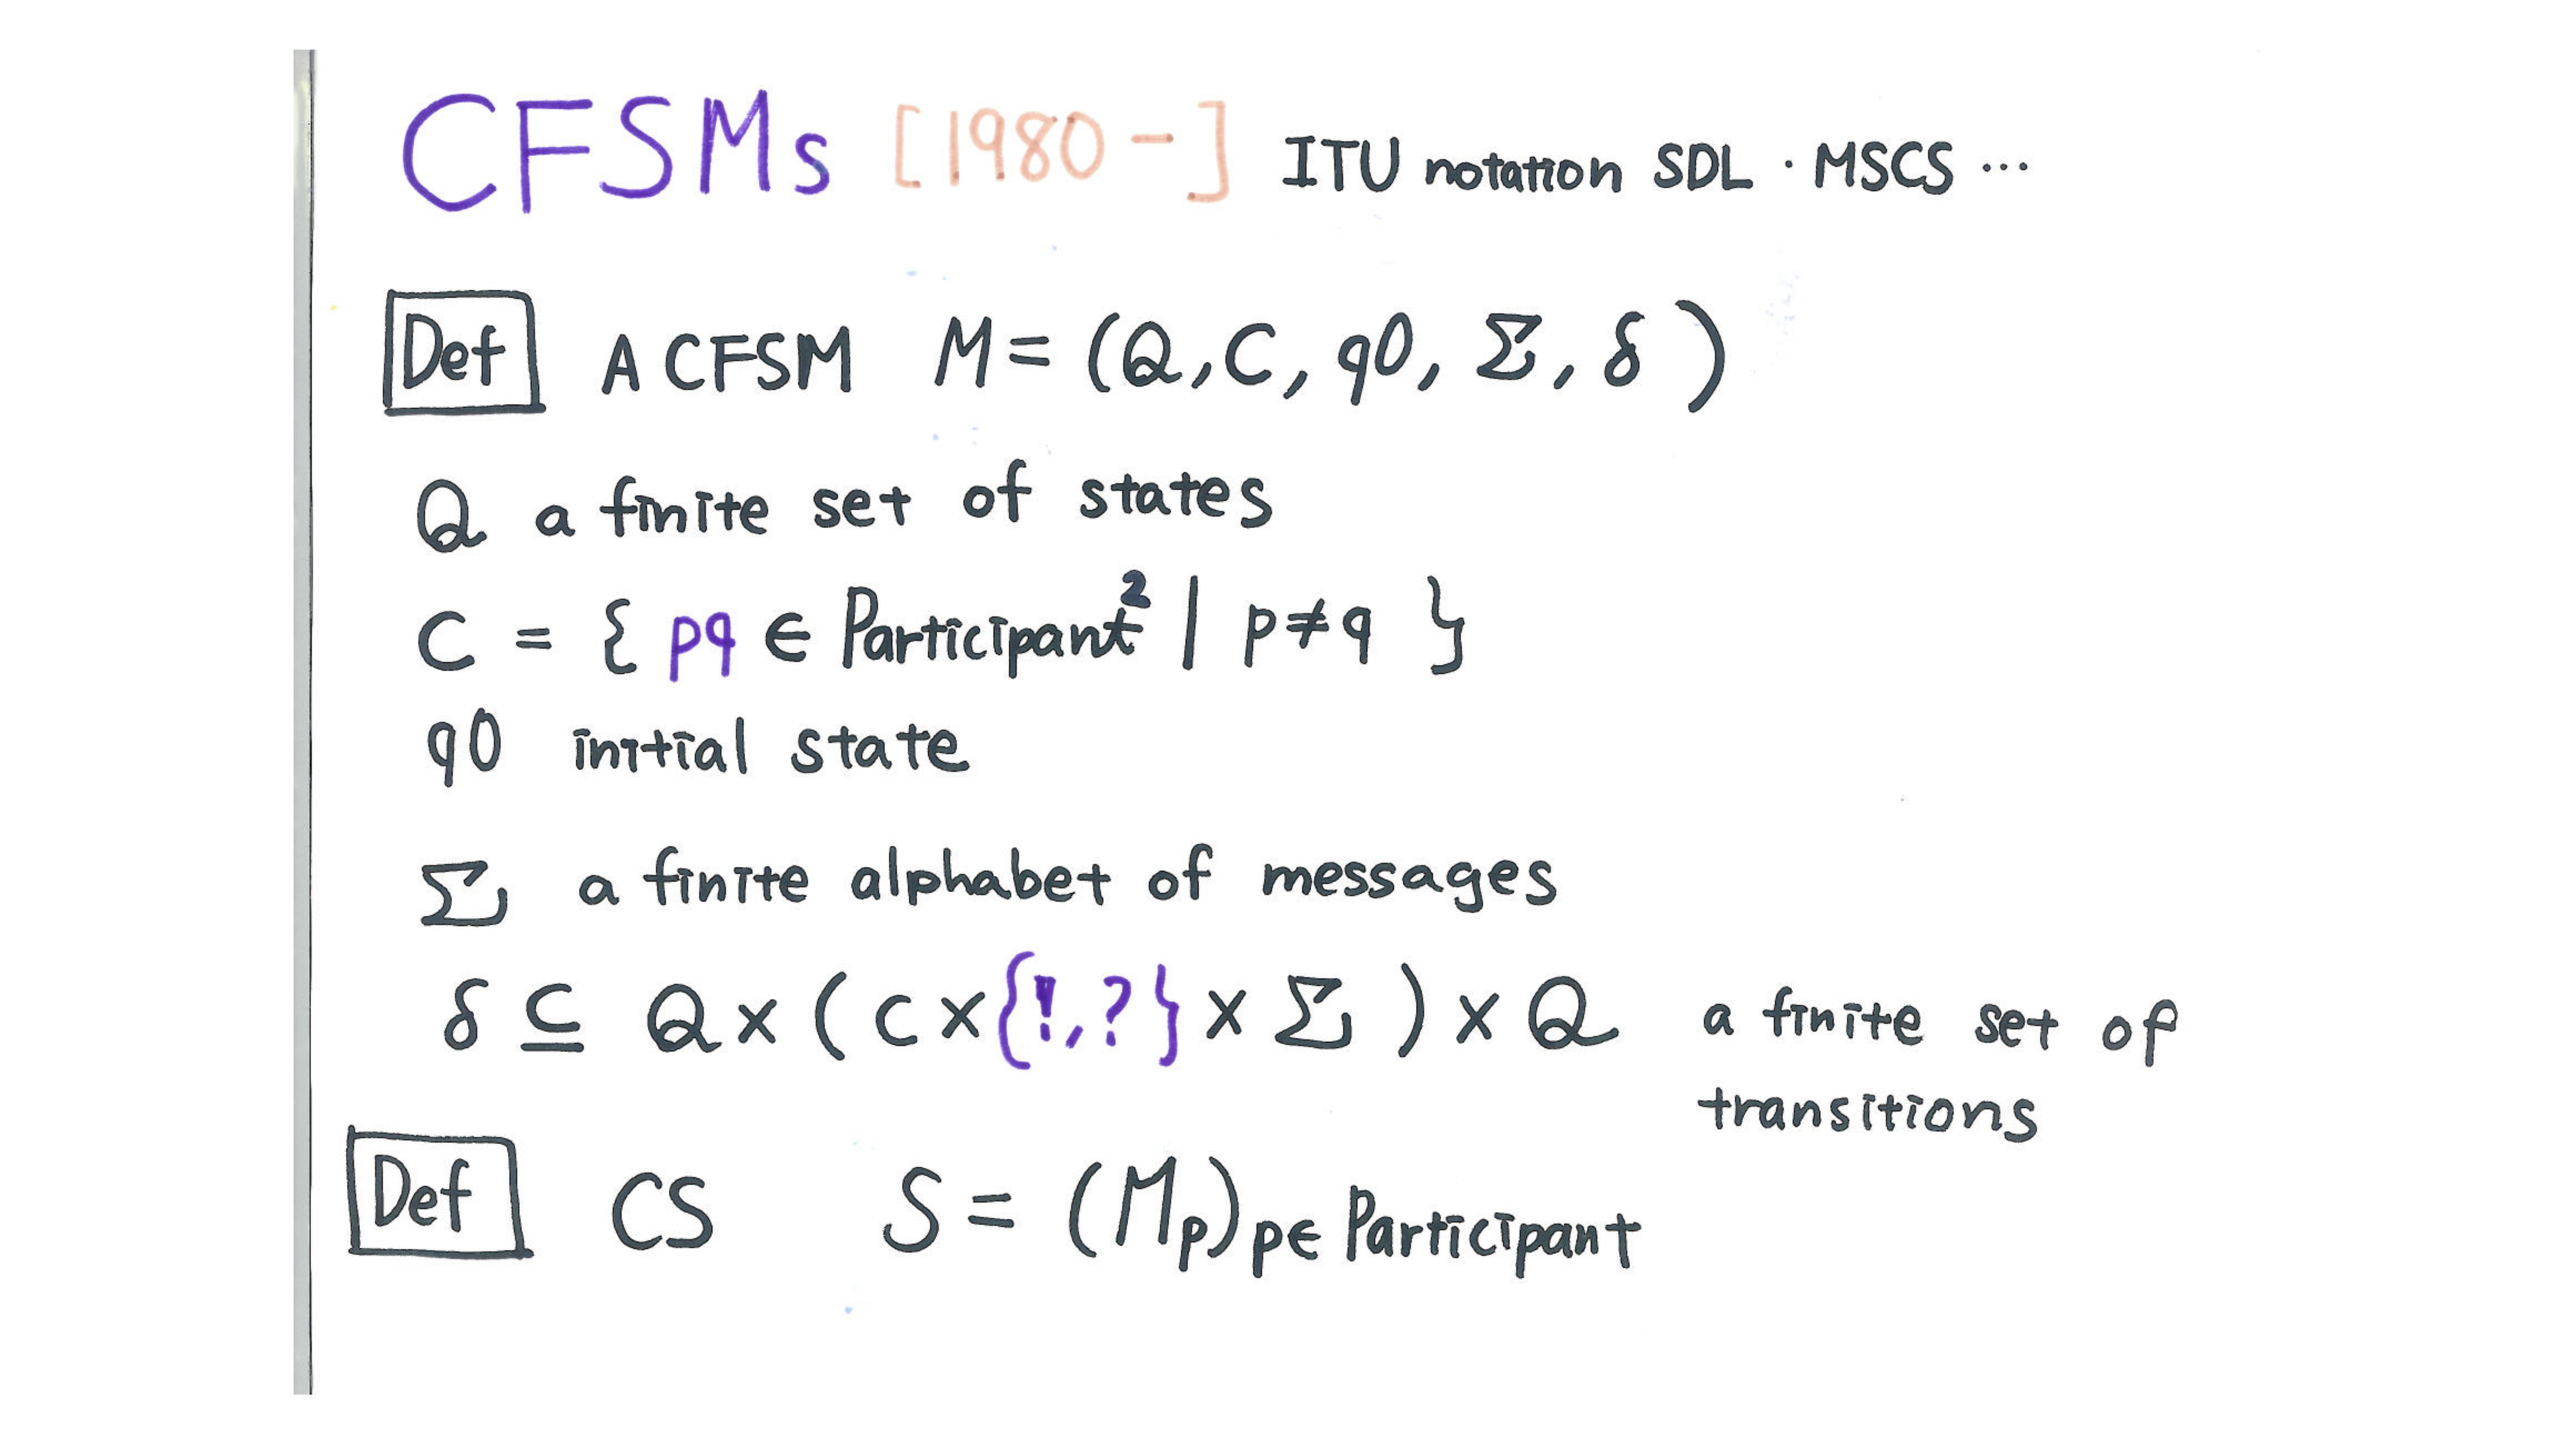 CFSMs [1980-] ITU notation SDL · MSCS ...
Def A CFSM M = (Q, C, q0, Σ, δ)
Q a finite set of states
C = { pq ∈ Participant² | p≠q }
q0 initial state
Σ a finite alphabet of messages
δ ⊆ Q × ( C × {!,?} × Σ ) × Q a finite set of
transitions
Def CS S = (Mp)p∈ Participant